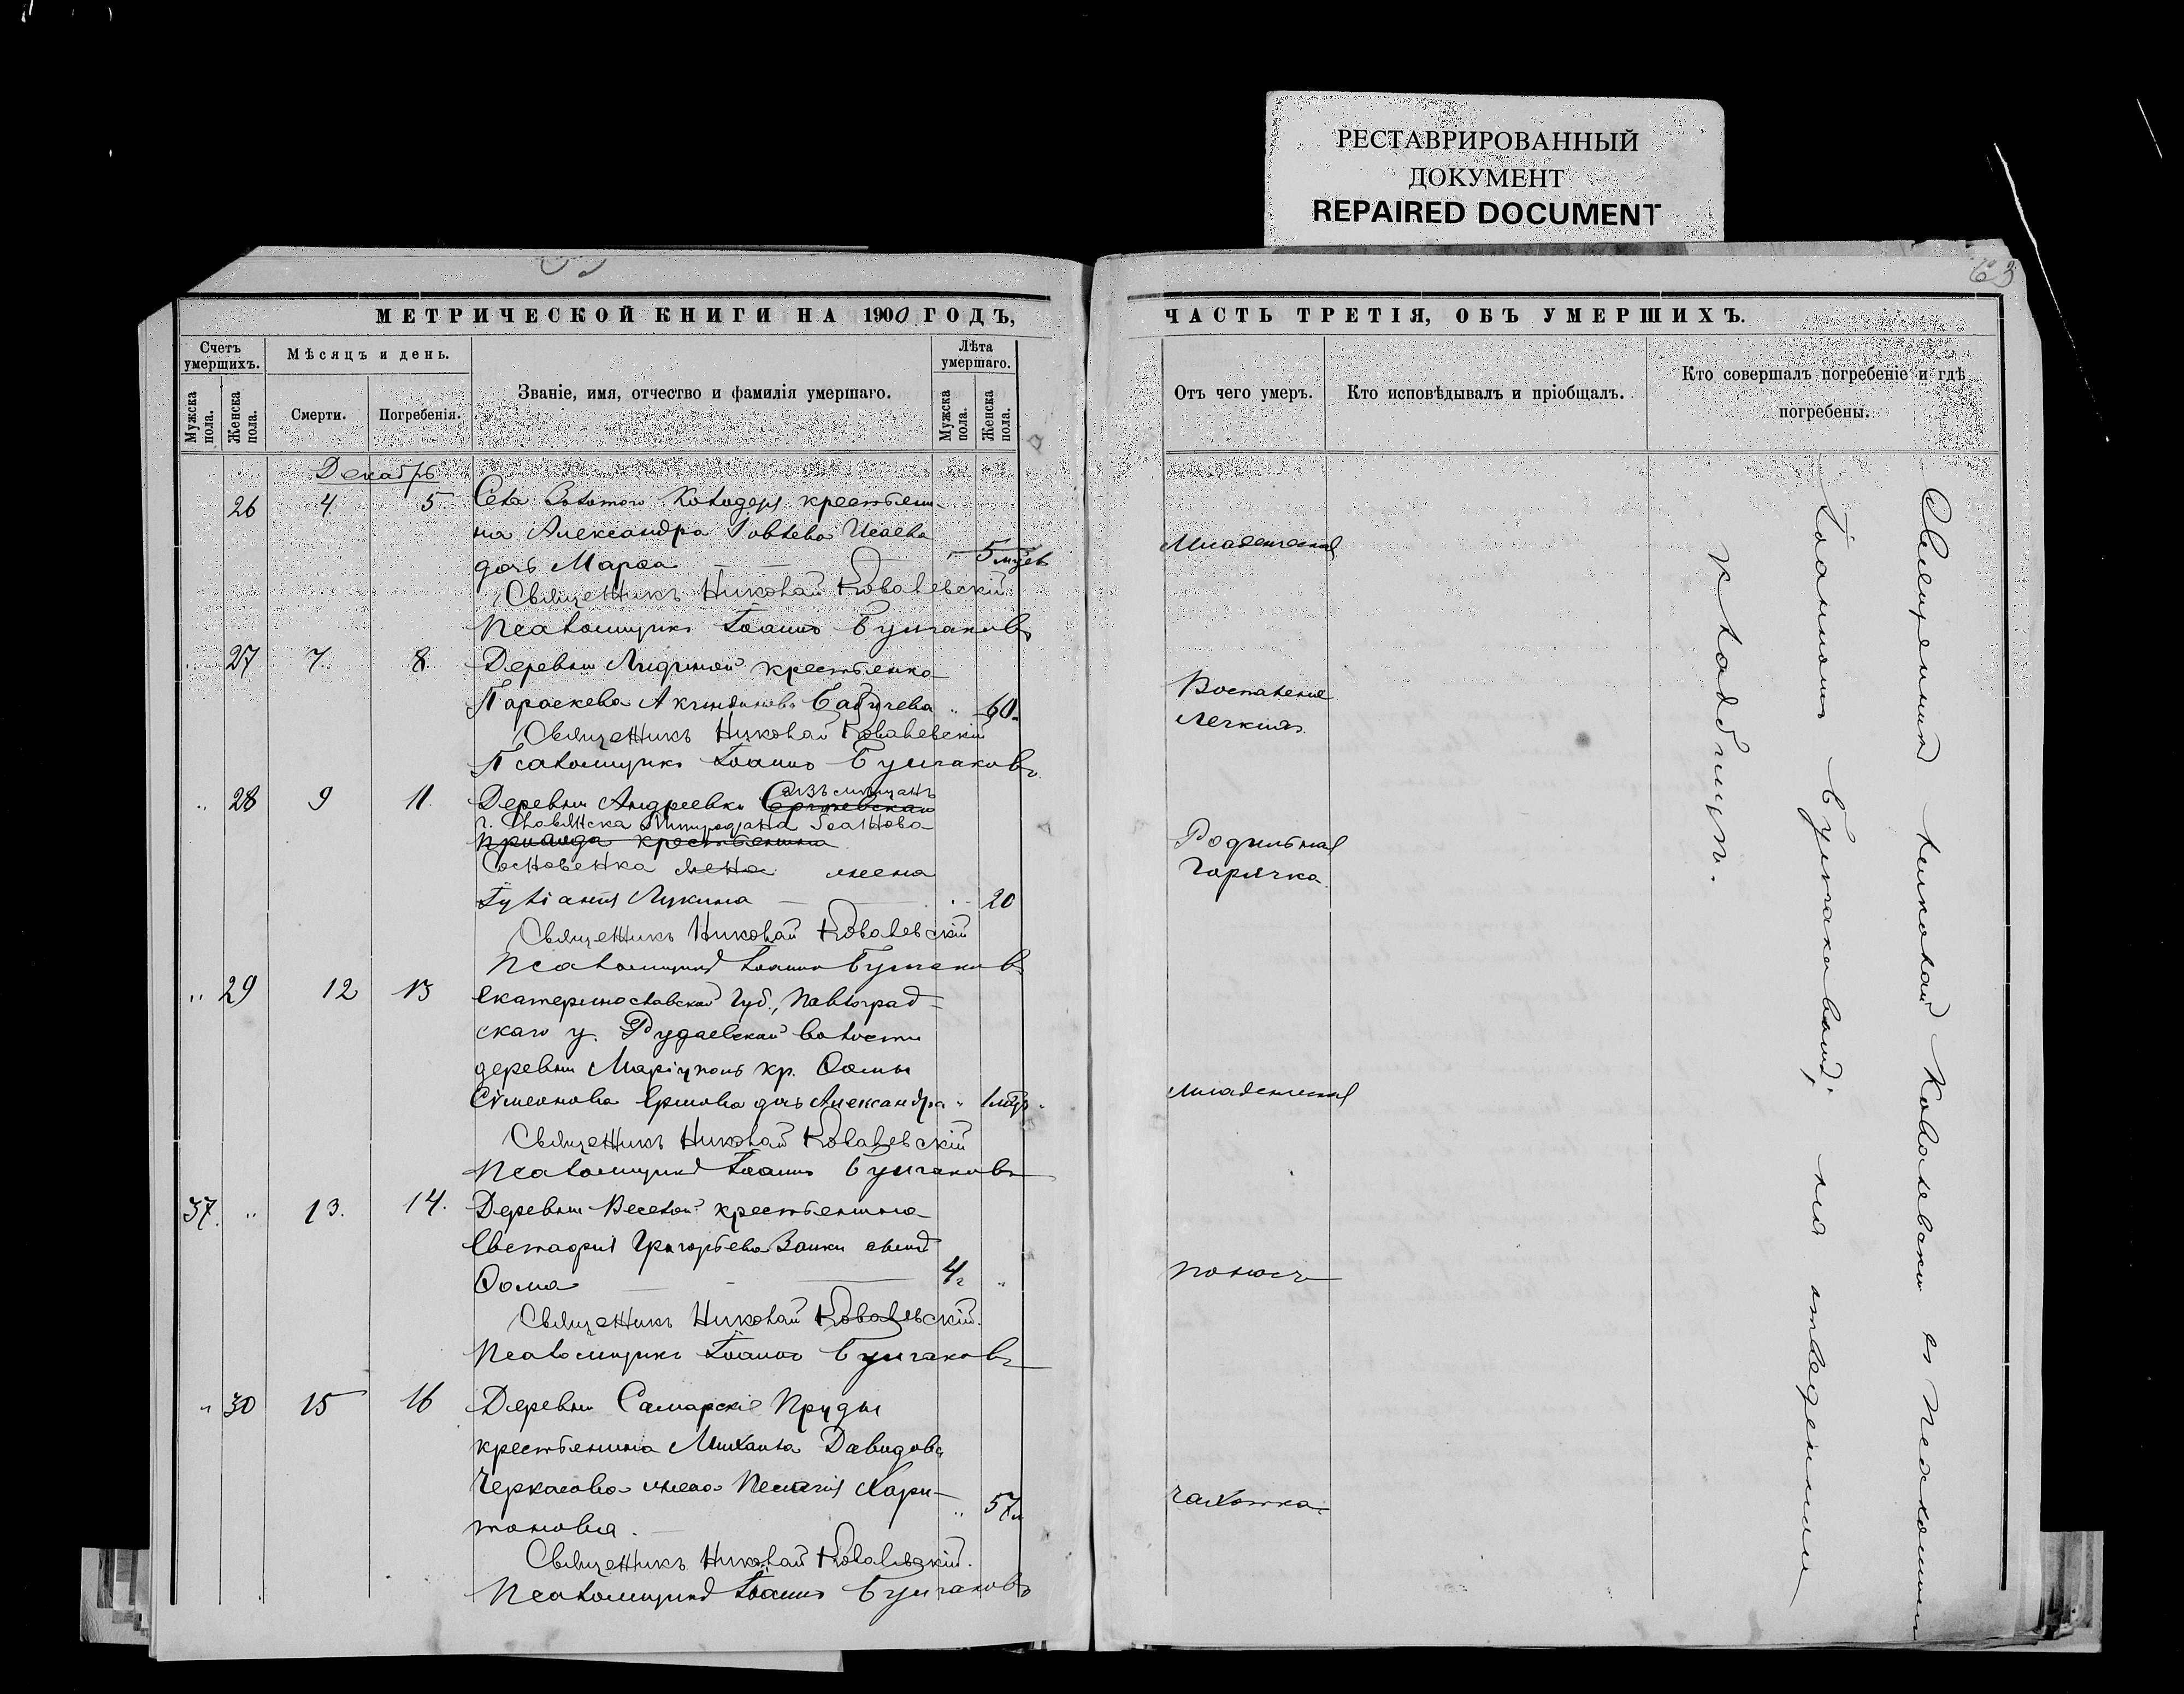 РЕСТАВРИРОВАННЫЙ
ДОКУМЕНТ
REPAIRED DOCUMENT
63
МЕТРИЧЕСКОЙ КНИГИ НА 1900 ГОДЪ,
Счетъ умершихъ.
Мужска пола.
Женска пола.
Мѣсяцъ и день.
Смерти.
Погребенія.
Званіе, имя, отчество и фамилія умершаго.
Лѣта умершаго.
Мужска пола.
Женска пола.
Декабрь
26 4 5 Села Золотого Колодезя крестьяни-
на Александра Іовлева Исаева
дочь Марѳа 5 мцевъ
Священникъ Николай Ковалевскій
Псаломщикъ Іоаннъ Булгаковъ
27 7 8 Деревни Лидиной крестьянка
Параскева Акиндинова 60
Священникъ Николай Ковалевскій
Псаломщикъ Іоаннъ Булгаковъ
" 28 9 11 Деревни Андреевки изъ мѣщанъ
г. Славянска Іоанова
крестьянина
жена
Іуліанія Лукина " 20
Священникъ Николай Ковалевскій
Псаломщикъ Іоаннъ Булгаковъ
" 29 12 13 Екатеринославской губ., Павлоград-
скаго у. волости
деревни Маріуполь кр. Ѳомы
Сѵмеонова дочь Александра "
Священникъ Николай Ковалевскій
Псаломщикъ Іоаннъ Булгаковъ
37. " 13. 14. Деревни Веселой крестьянина
Евстафія Григорьева Заики сынъ
Ѳома 4 г "
Священникъ Николай Ковалевскій.
Псаломщикъ Іоаннъ Булгаковъ
" 30 15 16 Деревни Самарскіе Пруды
крестьянина Михаила Давидова
Черкасова жена Пелагія Хари-
тоновна. " 57 л
Священникъ Николай Ковалевскій.
Псаломщикъ Іоаннъ Булгаковъ
ЧАСТЬ ТРЕТІЯ, ОБЪ УМЕРШИХЪ.
Отъ чего умеръ.
Кто исповѣдывалъ и пріобщалъ.
Кто совершалъ погребеніе и гдѣ погребены.
Младенческая
Воспаленіе
легкихъ
Родильная
горячка
Младенческая
Поносъ
Чахотка
Священникъ Николай Ковалевскій съ Псаломщикомъ
Іоанномъ Булгаковымъ; на отведенномъ
кладбищѣ.